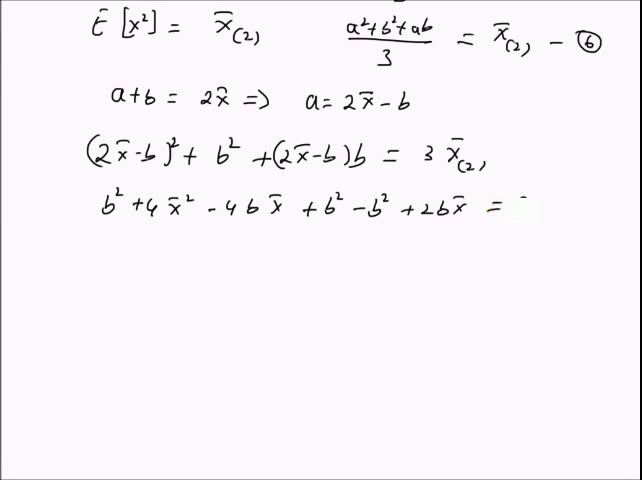 E [x²] = x̄₍₂₎ (a²+b²+ab)/3 = x̄₍₂₎ - ⑥
a+b = 2x̄ => a = 2x̄ - b
(2x̄-b)² + b² + (2x̄-b)b = 3 x̄₍₂₎
b² + 4x̄² - 4bx̄ + b² - b² + 2bx̄ =